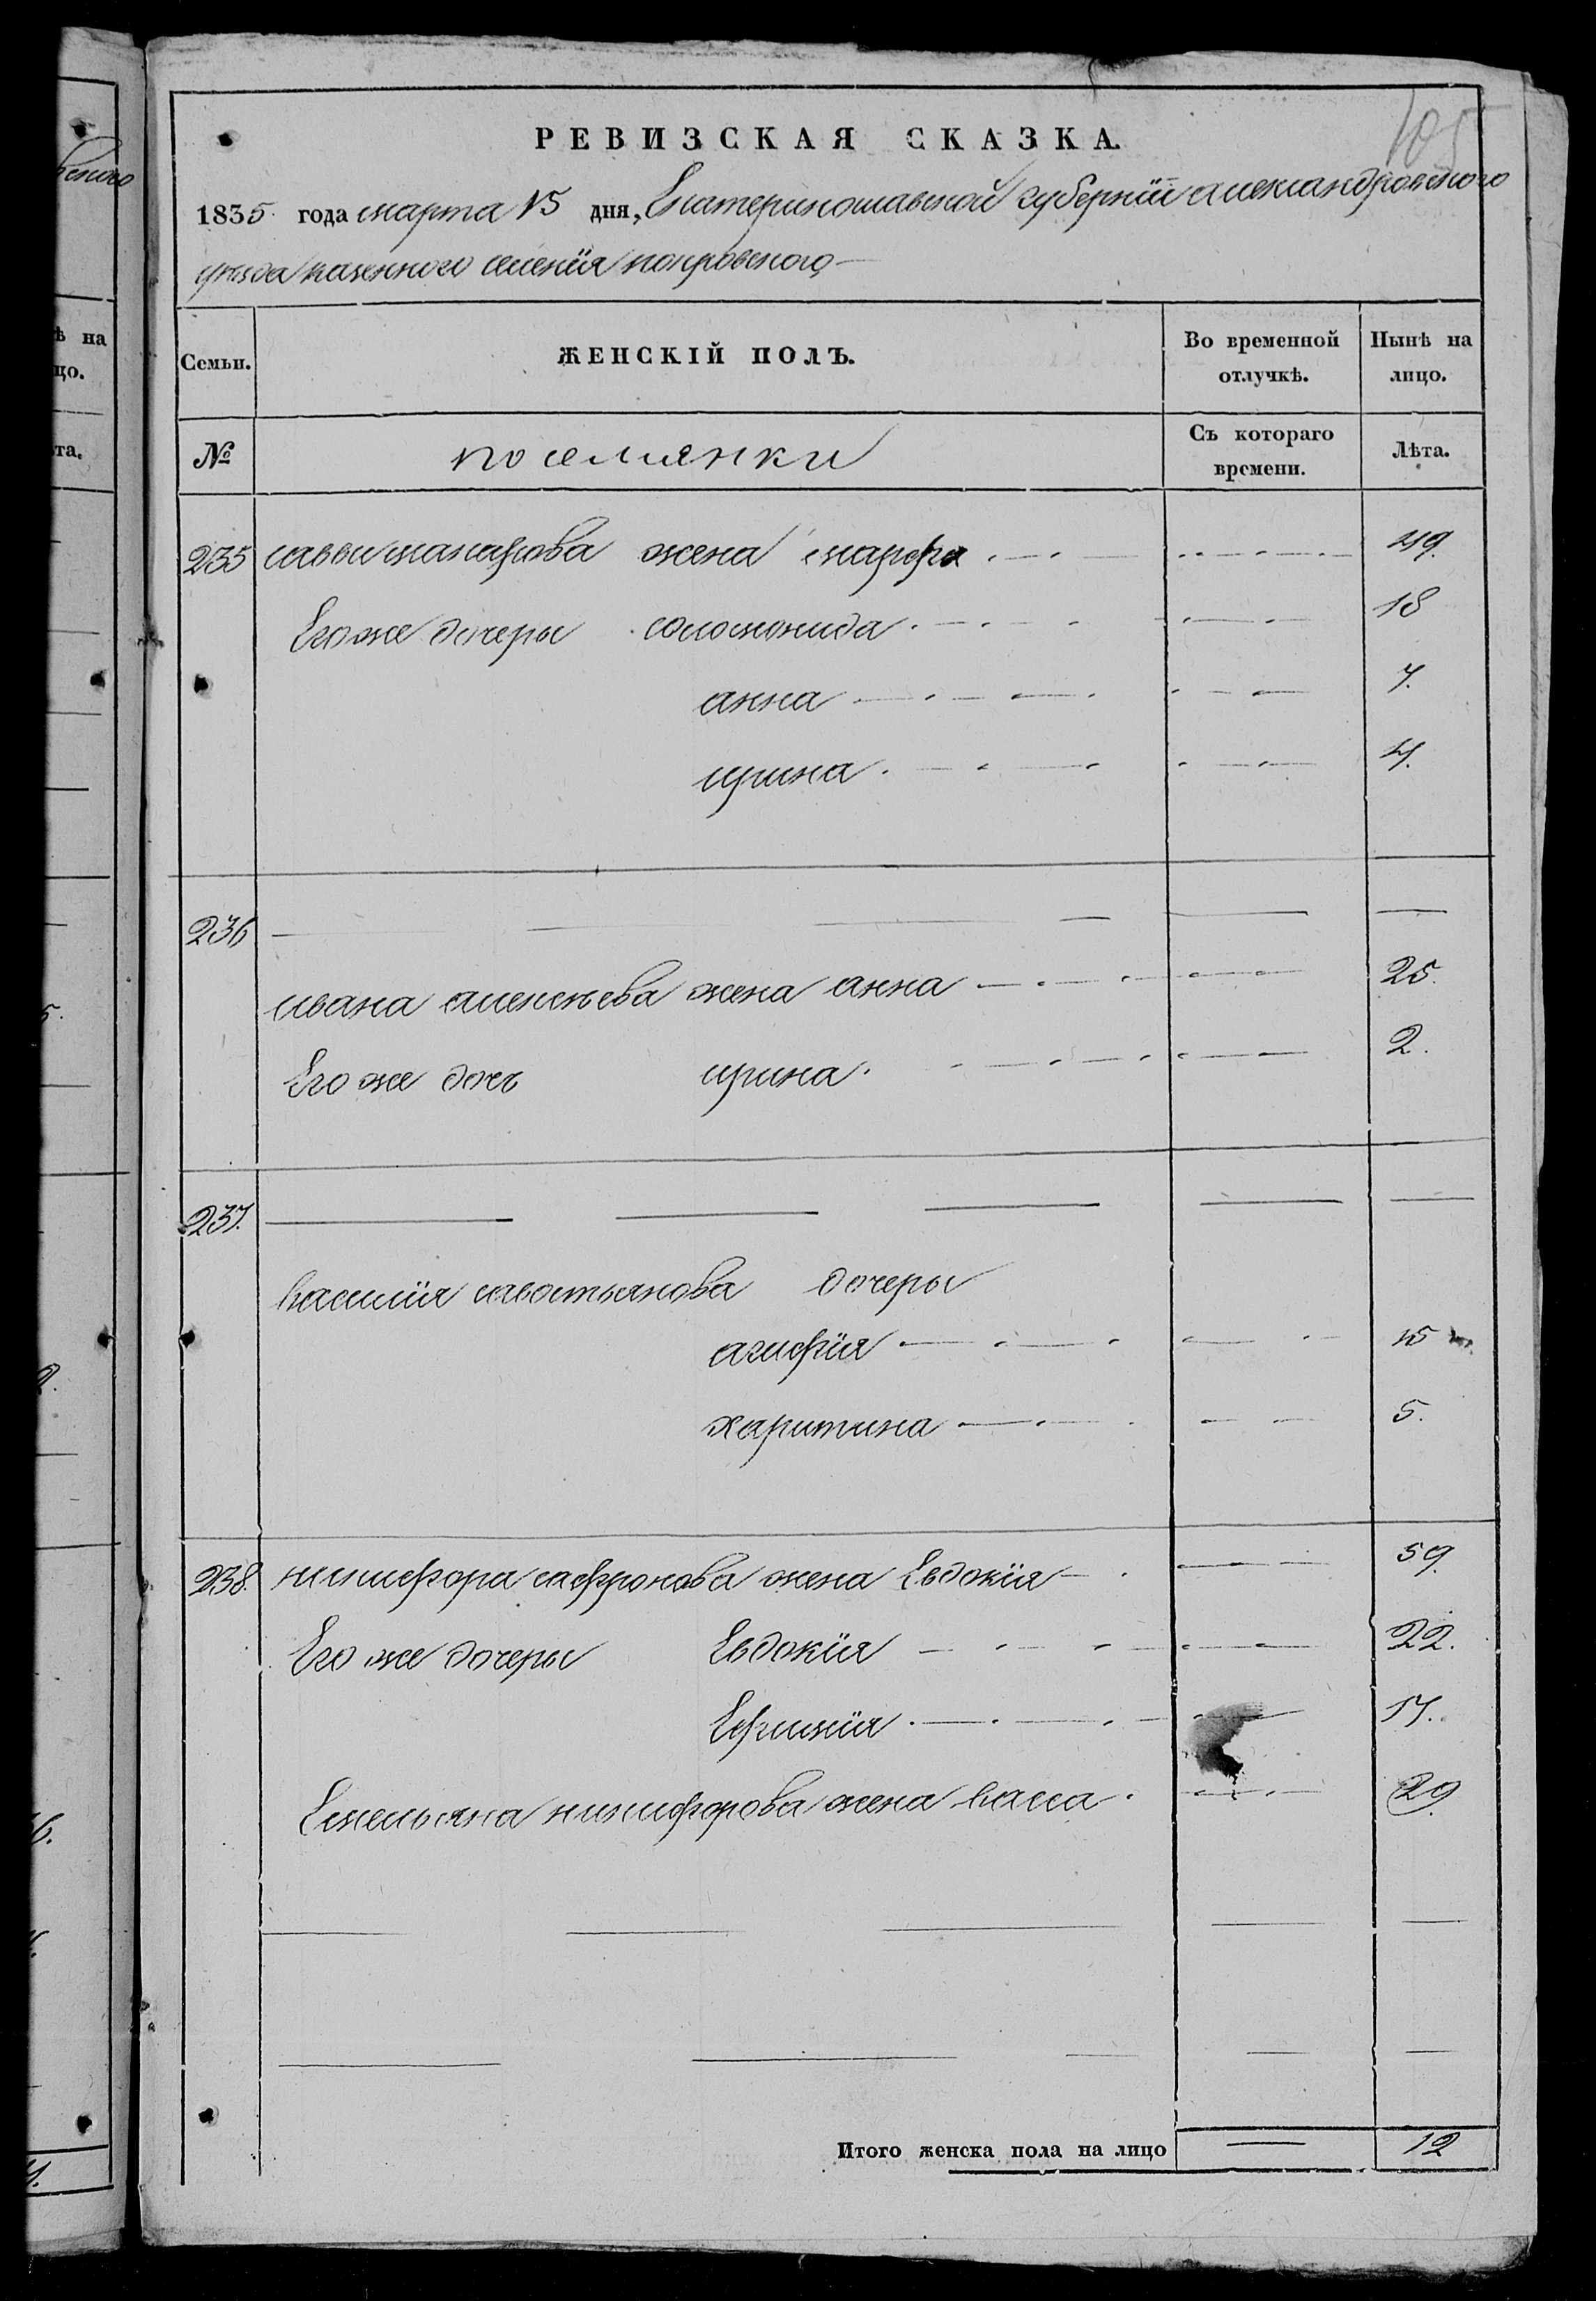 105
РЕВИЗСКАЯ СКАЗКА.
1835 года марта 15 дня, Екатеринославской губернїи александровского
уезда казенного селенїя покровского
Семьи. ЖЕНСКІЙ ПОЛЪ. Во временной отлучкѣ. Нынѣ на лицо.
№ поселянки Съ котораго времени. Лѣта.
235 саввы жена марфа 49.
Его же дочеры соломонида 18
анна 7.
ирина 4.
236
ивана алексеева жена анна 25.
Его же дочь ирина 2.
237.
василия савостьянова дочеры
агафїя 15
харитина 5.
238. никифора сафронова жена Евдокїя 59.
Его же дочеры Евдокїя 22.
Ефимїя 17.
Емельяна никифорова жена васса 29.
Итого женска пола на лицо 12